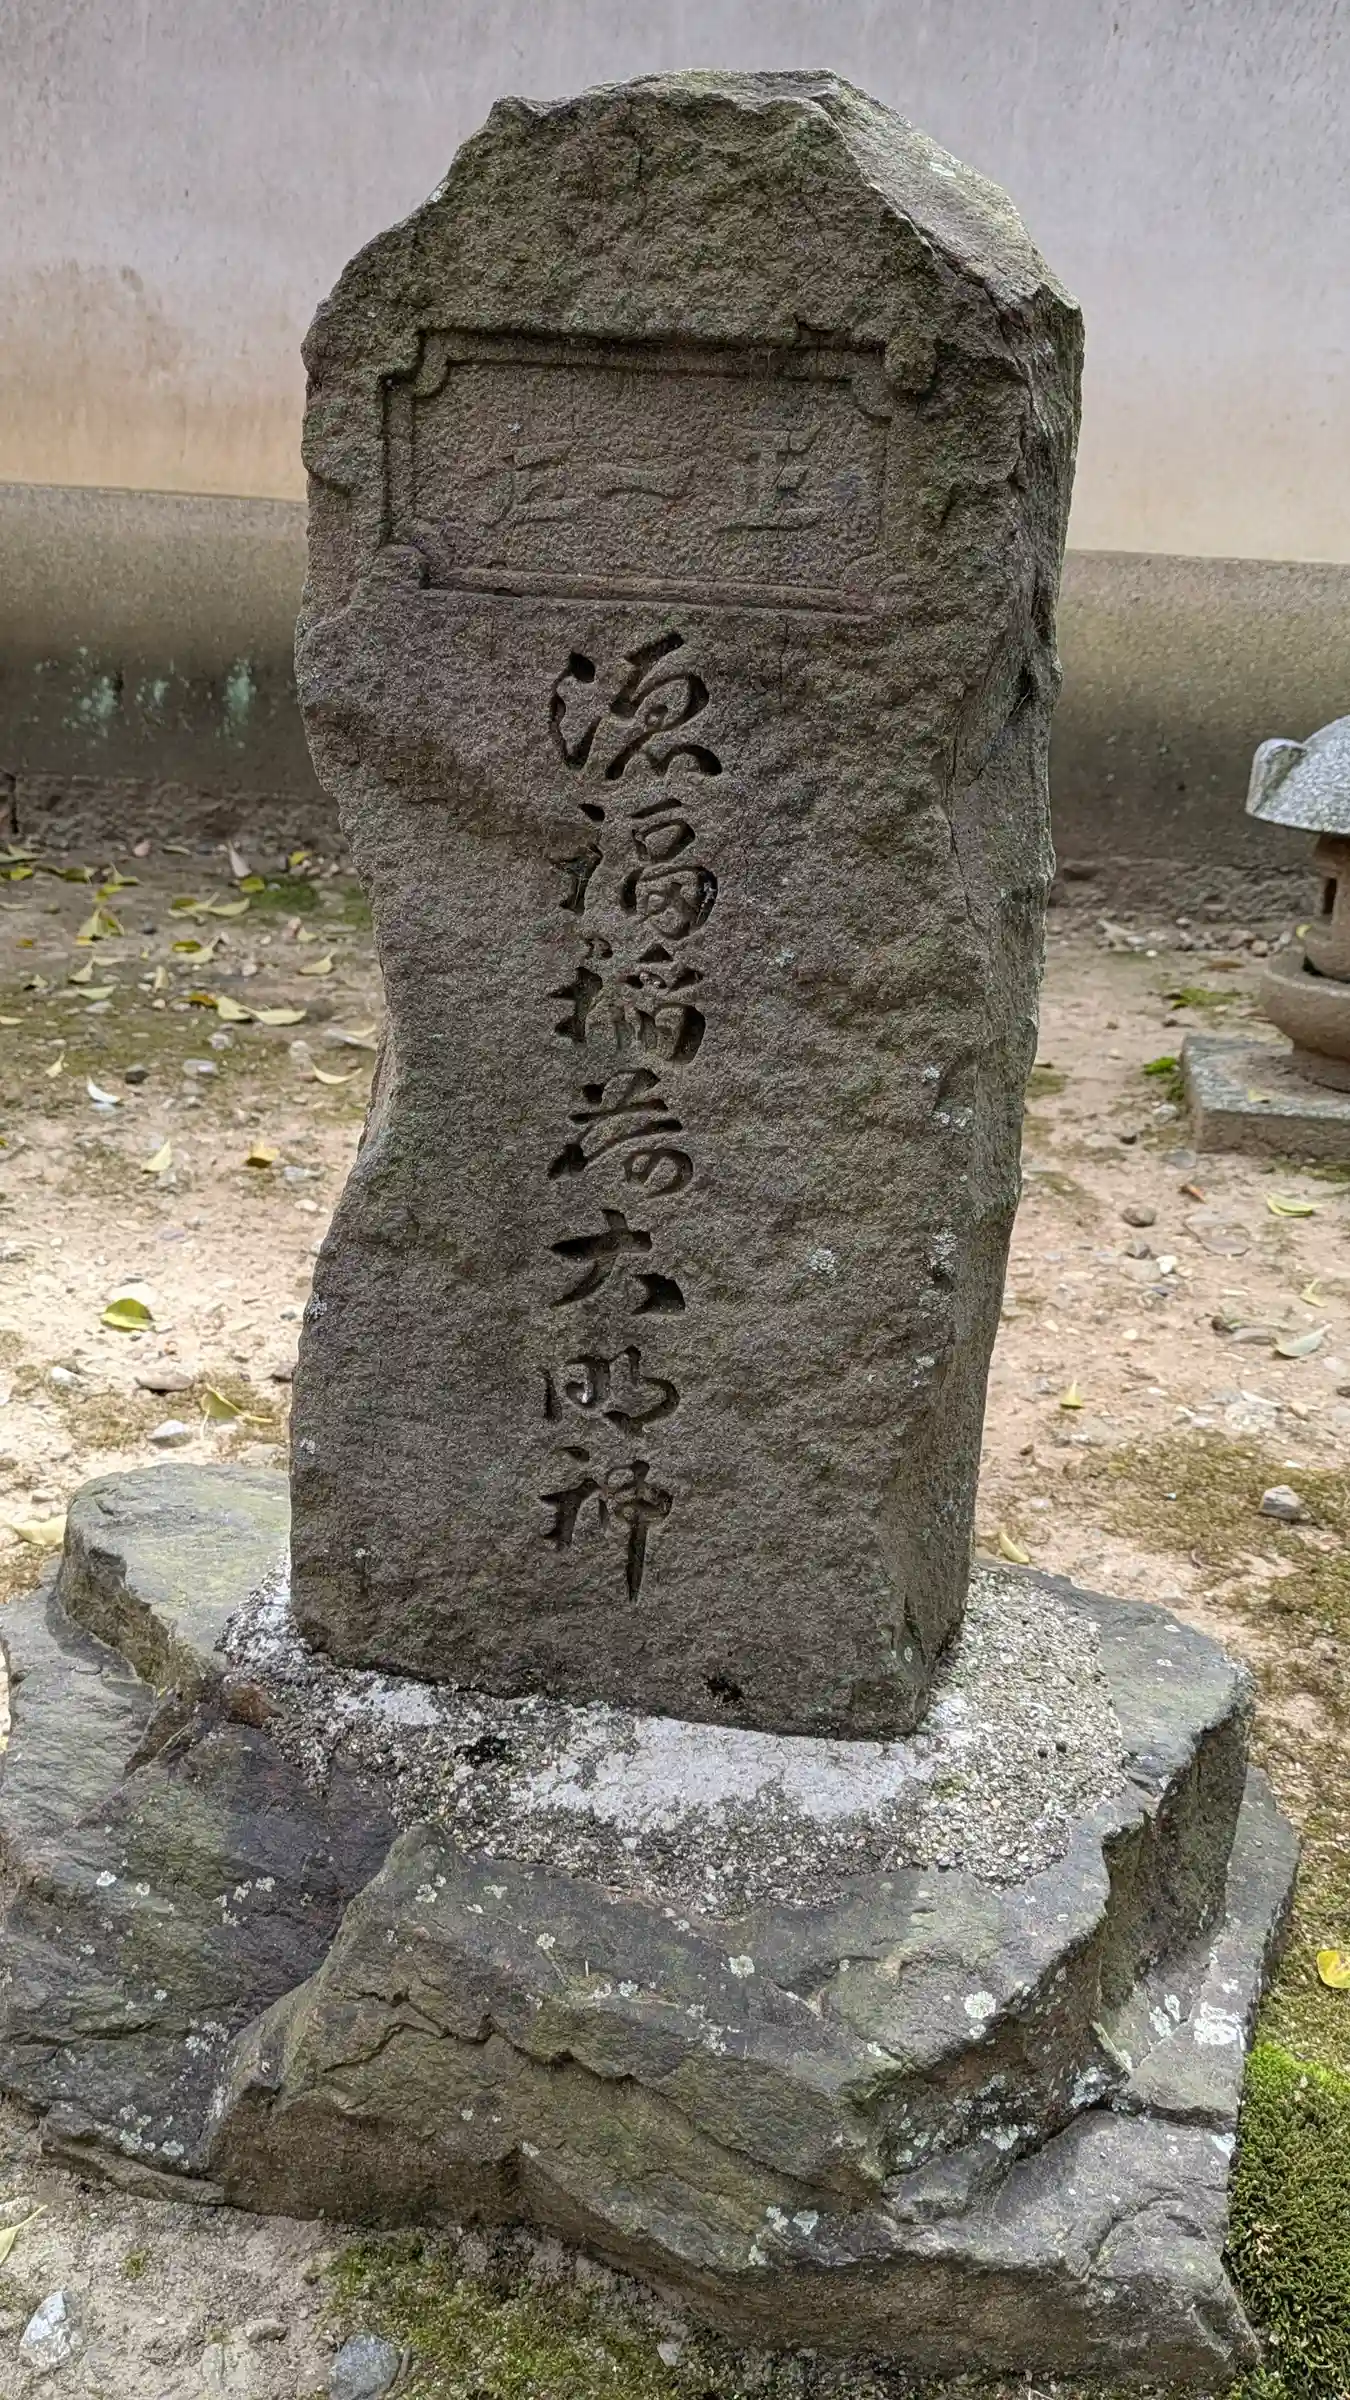 正一位
源福稲荷大明神